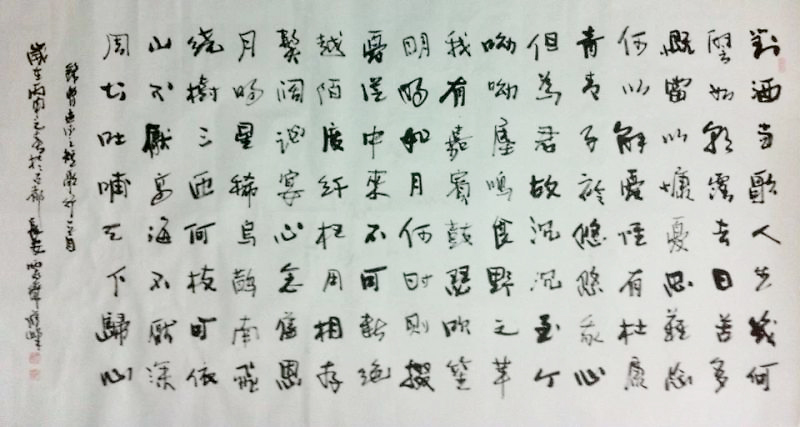 對酒当歌人生幾何
譬如朝露去日苦多
慨當以慷憂思難忘
何以解憂惟有杜康
青青子衿悠悠我心
但為君故沉沉至今
呦呦鹿鳴食野之苹
我有嘉賓鼓瑟吹笙
明明如月何时則掇
憂從中來不可断绝
越陌度阡枉用相存
契阔談宴心念舊恩
月明星稀烏鵲南飛
绕樹三匝何枝可依
山不厭高海不厭深
周公吐哺天下歸心
錄曹孟德短歌行一首
歲在丙申之春於古都長安